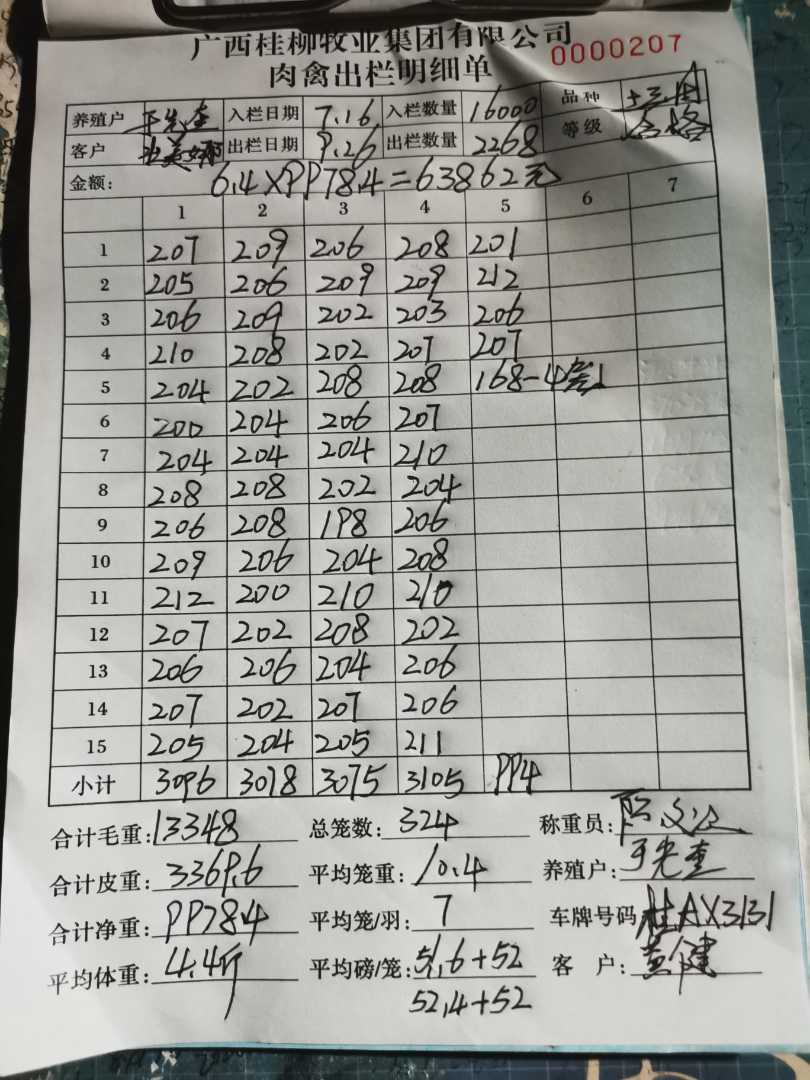 广西桂柳牧业集团有限公司
肉禽出栏明细单 0000207
养殖户 于光奎 入栏日期 7.16 入栏数量 16000 品种
客户 出栏日期 9.26 出栏数量 2268 等级 合格
金额: 6.4×9978.4=63862元
1 2 3 4 5 6 7
1 207 209 206 208 201
2 205 206 209 209 212
3 206 209 202 203 206
4 210 208 202 207 207
5 204 202 208 208 168-4差1
6 200 204 206 207
7 204 204 204 210
8 208 208 202 204
9 206 208 198 206
10 209 206 204 208
11 212 200 210 210
12 207 202 208 202
13 206 206 204 206
14 207 202 207 206
15 205 204 205 211
小计 3096 3078 3075 3105 994
合计毛重:13348 总笼数:324 称重员:
合计皮重:3369.6 平均笼重:10.4 养殖户:于光奎
合计净重:9978.4 平均笼/羽:7 车牌号码 桂AX3131
平均体重:4.4斤 平均磅/笼:51.6+52 客 户:黄健
52.4+52